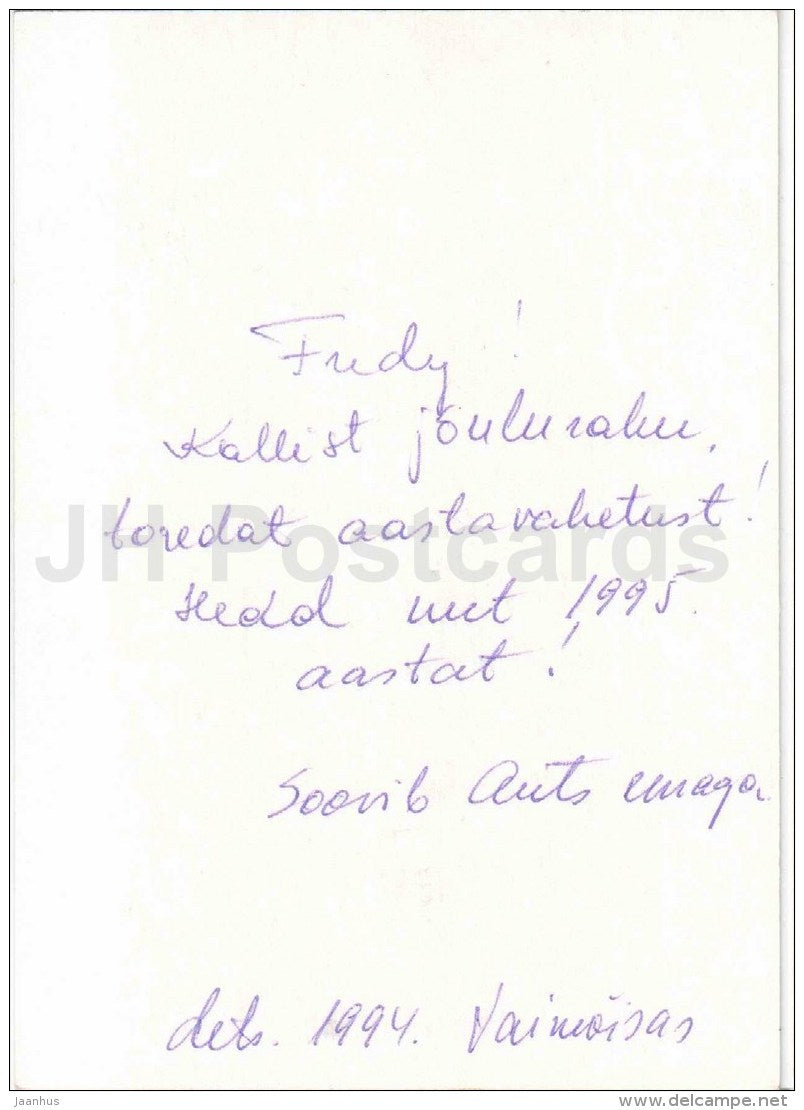 Fredy!
Kallist jõulurahu,
toredat aastavahetust!
Head uut 1995.
aastat!
Soovib Ants emaga
dets. 1994. Vaimõisas
JH Postcards
Jaanhus
www.delcampe.net